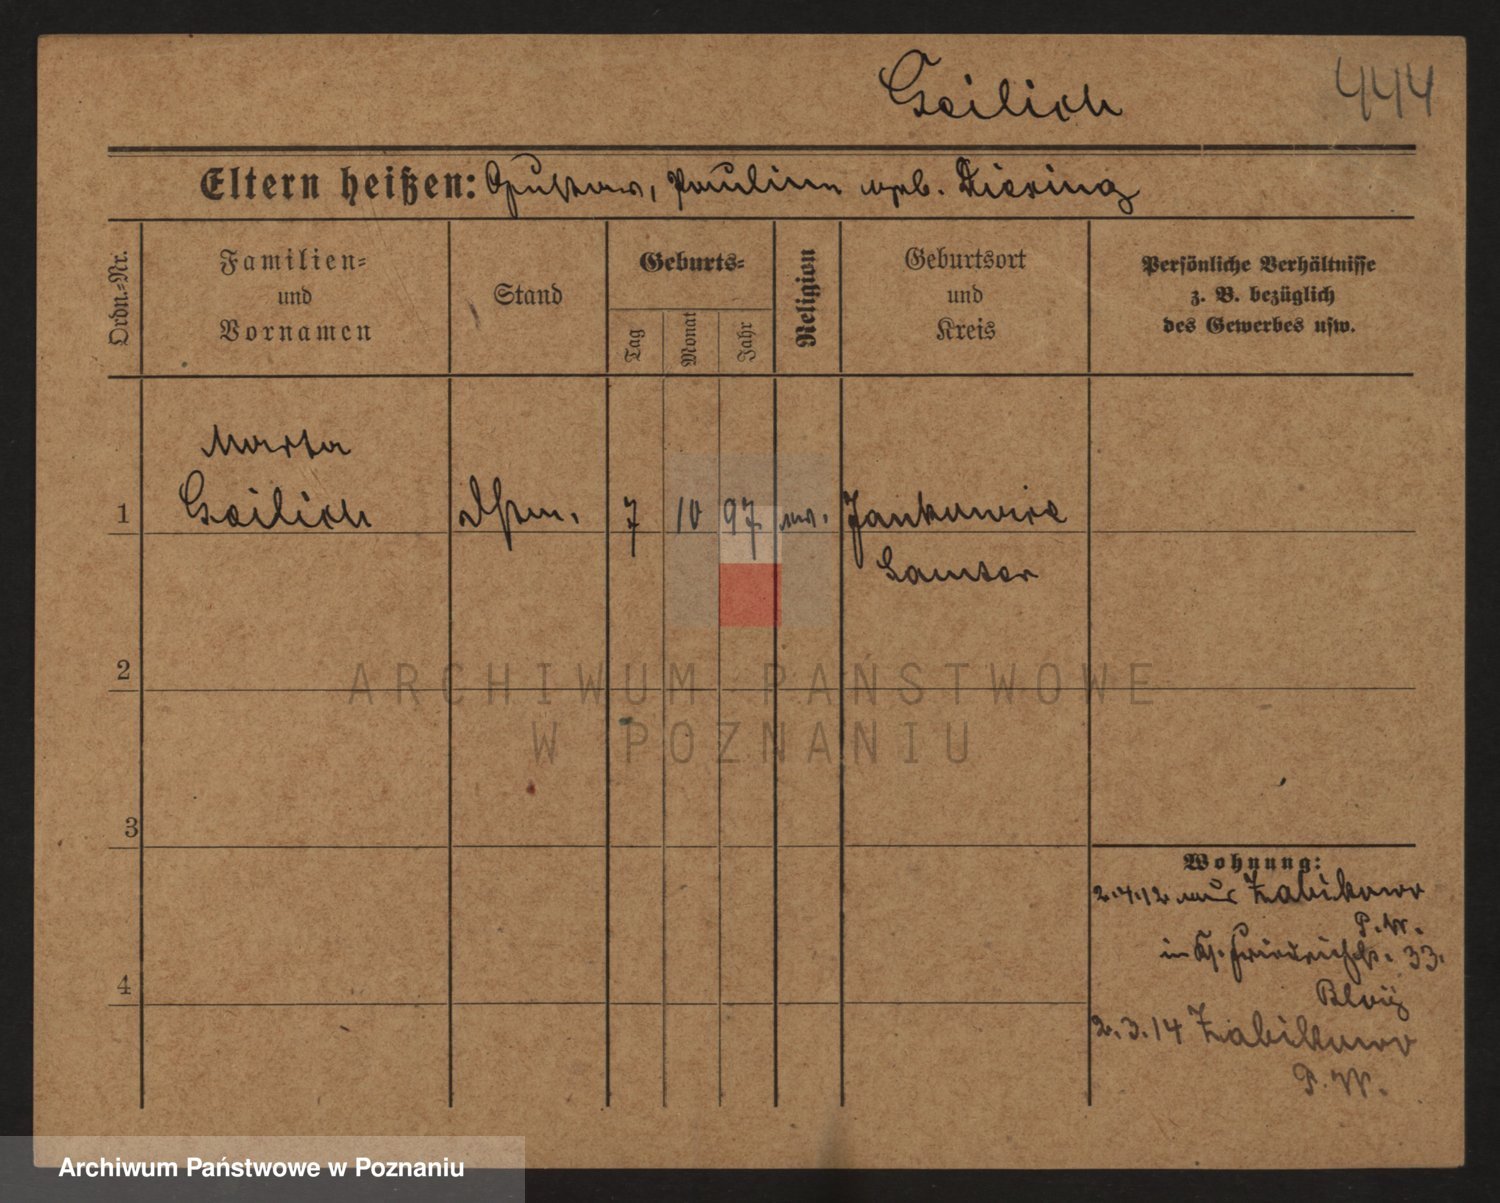 Geilich 444
Eltern heißen: Gustav, Pauline geb. Diering
Ordn.-Nr.
Familien-
und
Vornamen
Stand
Geburts-
Tag
Monat
Jahr
Religion
Geburtsort
und
Kreis
Persönliche Verhältnisse
z. B. bezüglich
des Gewerbes usw.
Marta
1 Geilich 7 10 97 ev. Jankowice
Samter
2
ARCHIWUM PAŃSTWOWE
W POZNANIU
3
Wohnung:
2.4.12 aus Zabikowo
P.W.
in Friedrichstr. 33.
4
2.3.14 Zabikowo
P.W.
Archiwum Państwowe w Poznaniu